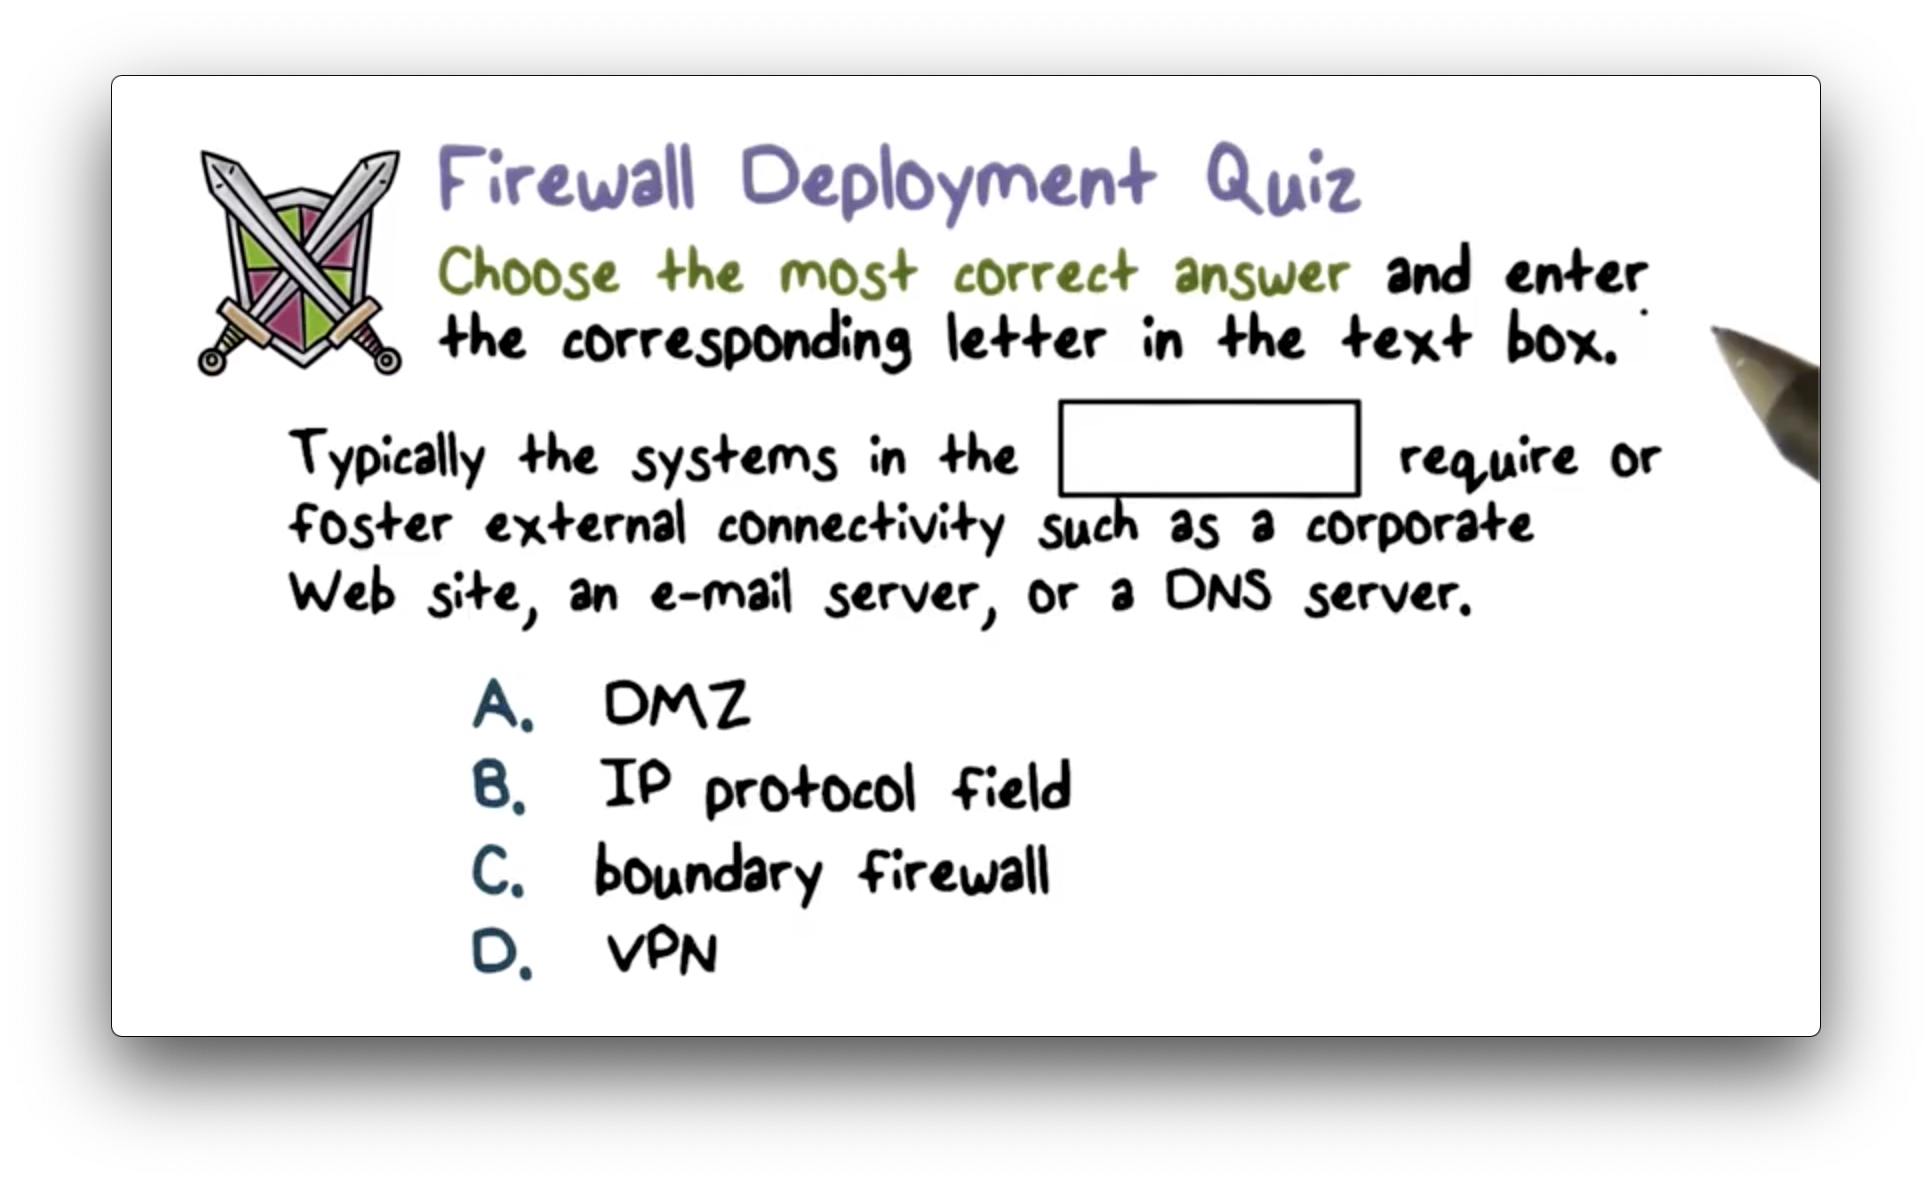 Firewall Deployment Quiz
Choose the most correct answer and enter
the corresponding letter in the text box.
Typically the systems in the require or
foster external connectivity such as a corporate
Web site, an e-mail server, or a DNS server.
A. DMZ
B. IP protocol field
C. boundary firewall
D. VPN